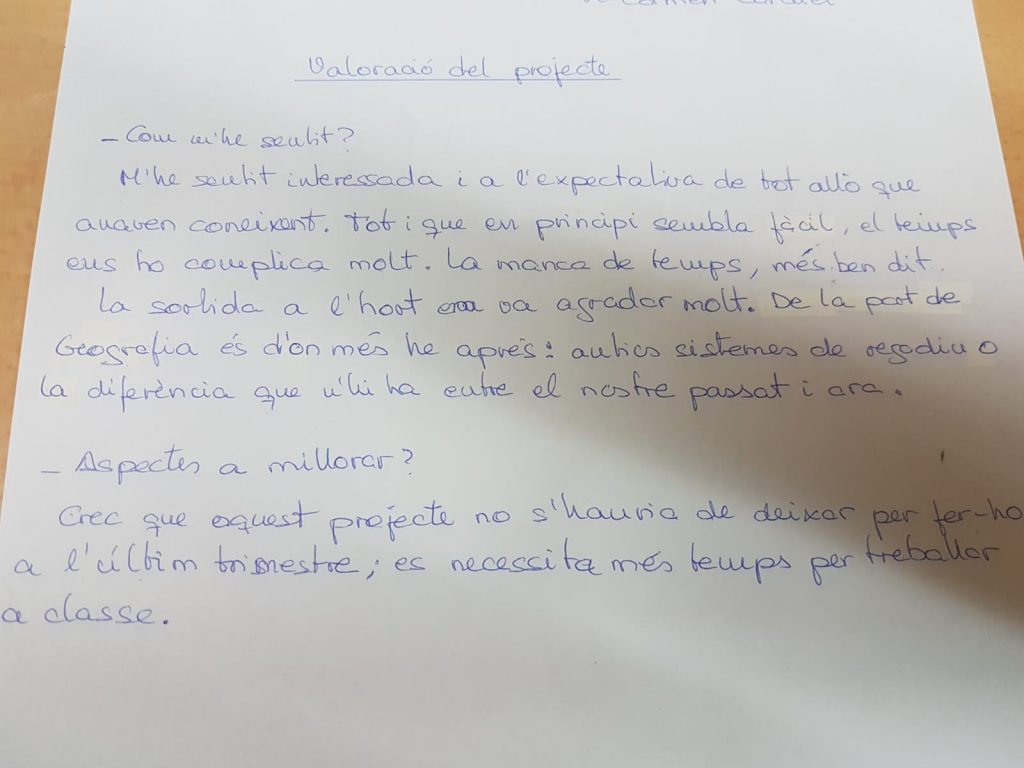 Valoració del projecte
- Com m'he sentit?
M'he sentit interessada i a l'expectativa de tot allò que
anaven coneixent. Tot i que en principi sembla fàcil, el temps
ens ho complica molt. La manca de temps, més ben dit.
La sortida a l'hort em va agradar molt. De la part de
Geografia és d'on més he aprés: antics sistemes de regadiu o
la diferència que n'hi ha entre el nostre passat i ara.
- Aspectes a millorar?
Crec que aquest projecte no s'hauria de deixar per fer-ho
a l'últim trimestre; es necessita més temps per treballar
a classe.